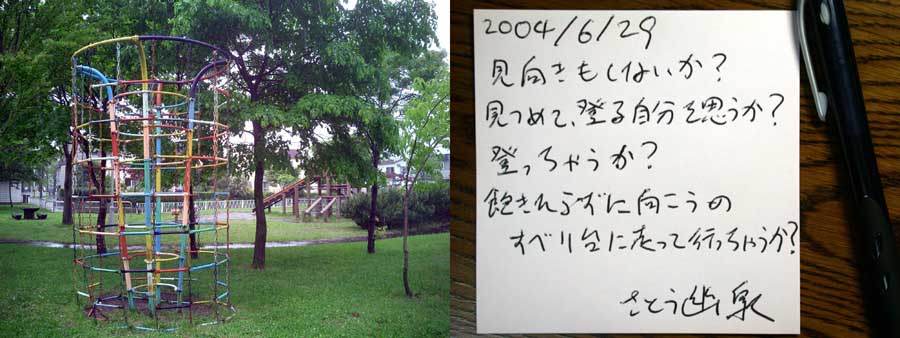 2004/6/29
見向きもしないか?
見つめて、登る自分を思うか?
登っちゃうか?
飽きたらずに向こうの
すべり台に走って行っちゃうか?
さとう 泉